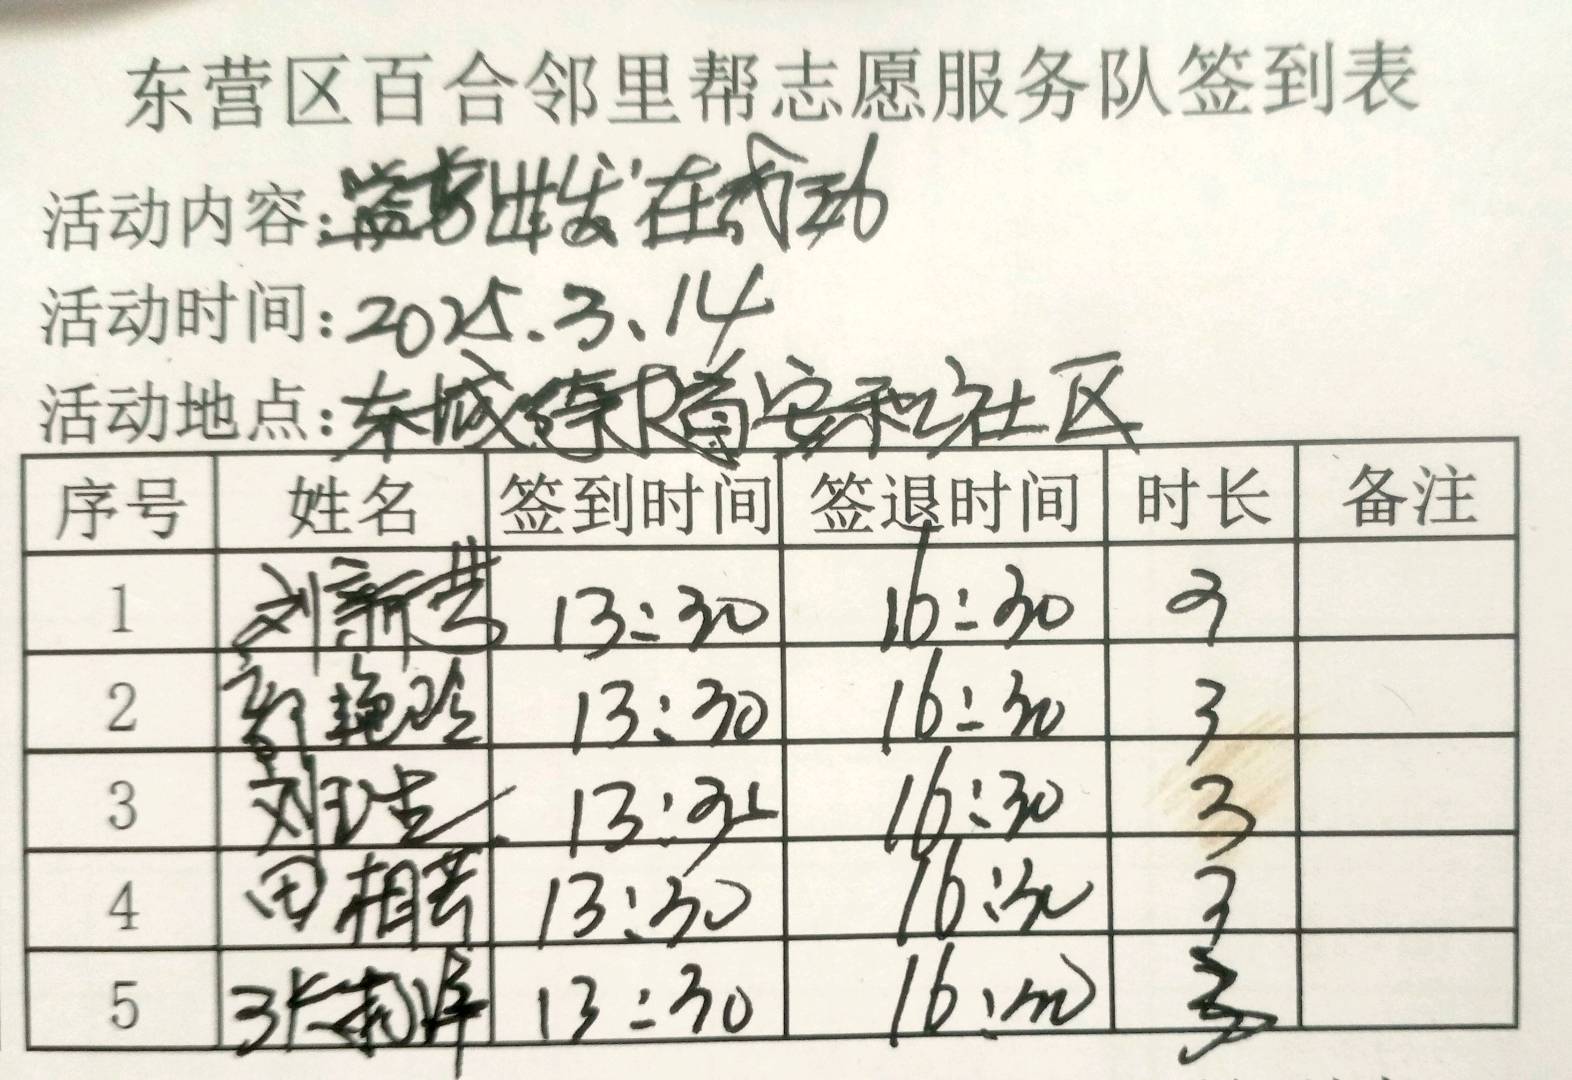 东营区百合邻里帮志愿服务队签到表
活动内容:益家出发在行动
活动时间:2025.3.14
活动地点:东城 安和社区
序号 姓名 签到时间 签退时间 时长 备注
1 刘新 13:30 16:30 3
2 艳玲 13:30 16:30 3
3 刘玉 13:30 16:30 3
4 田相 13:30 16:30 3
5 张 13:30 16:30 3